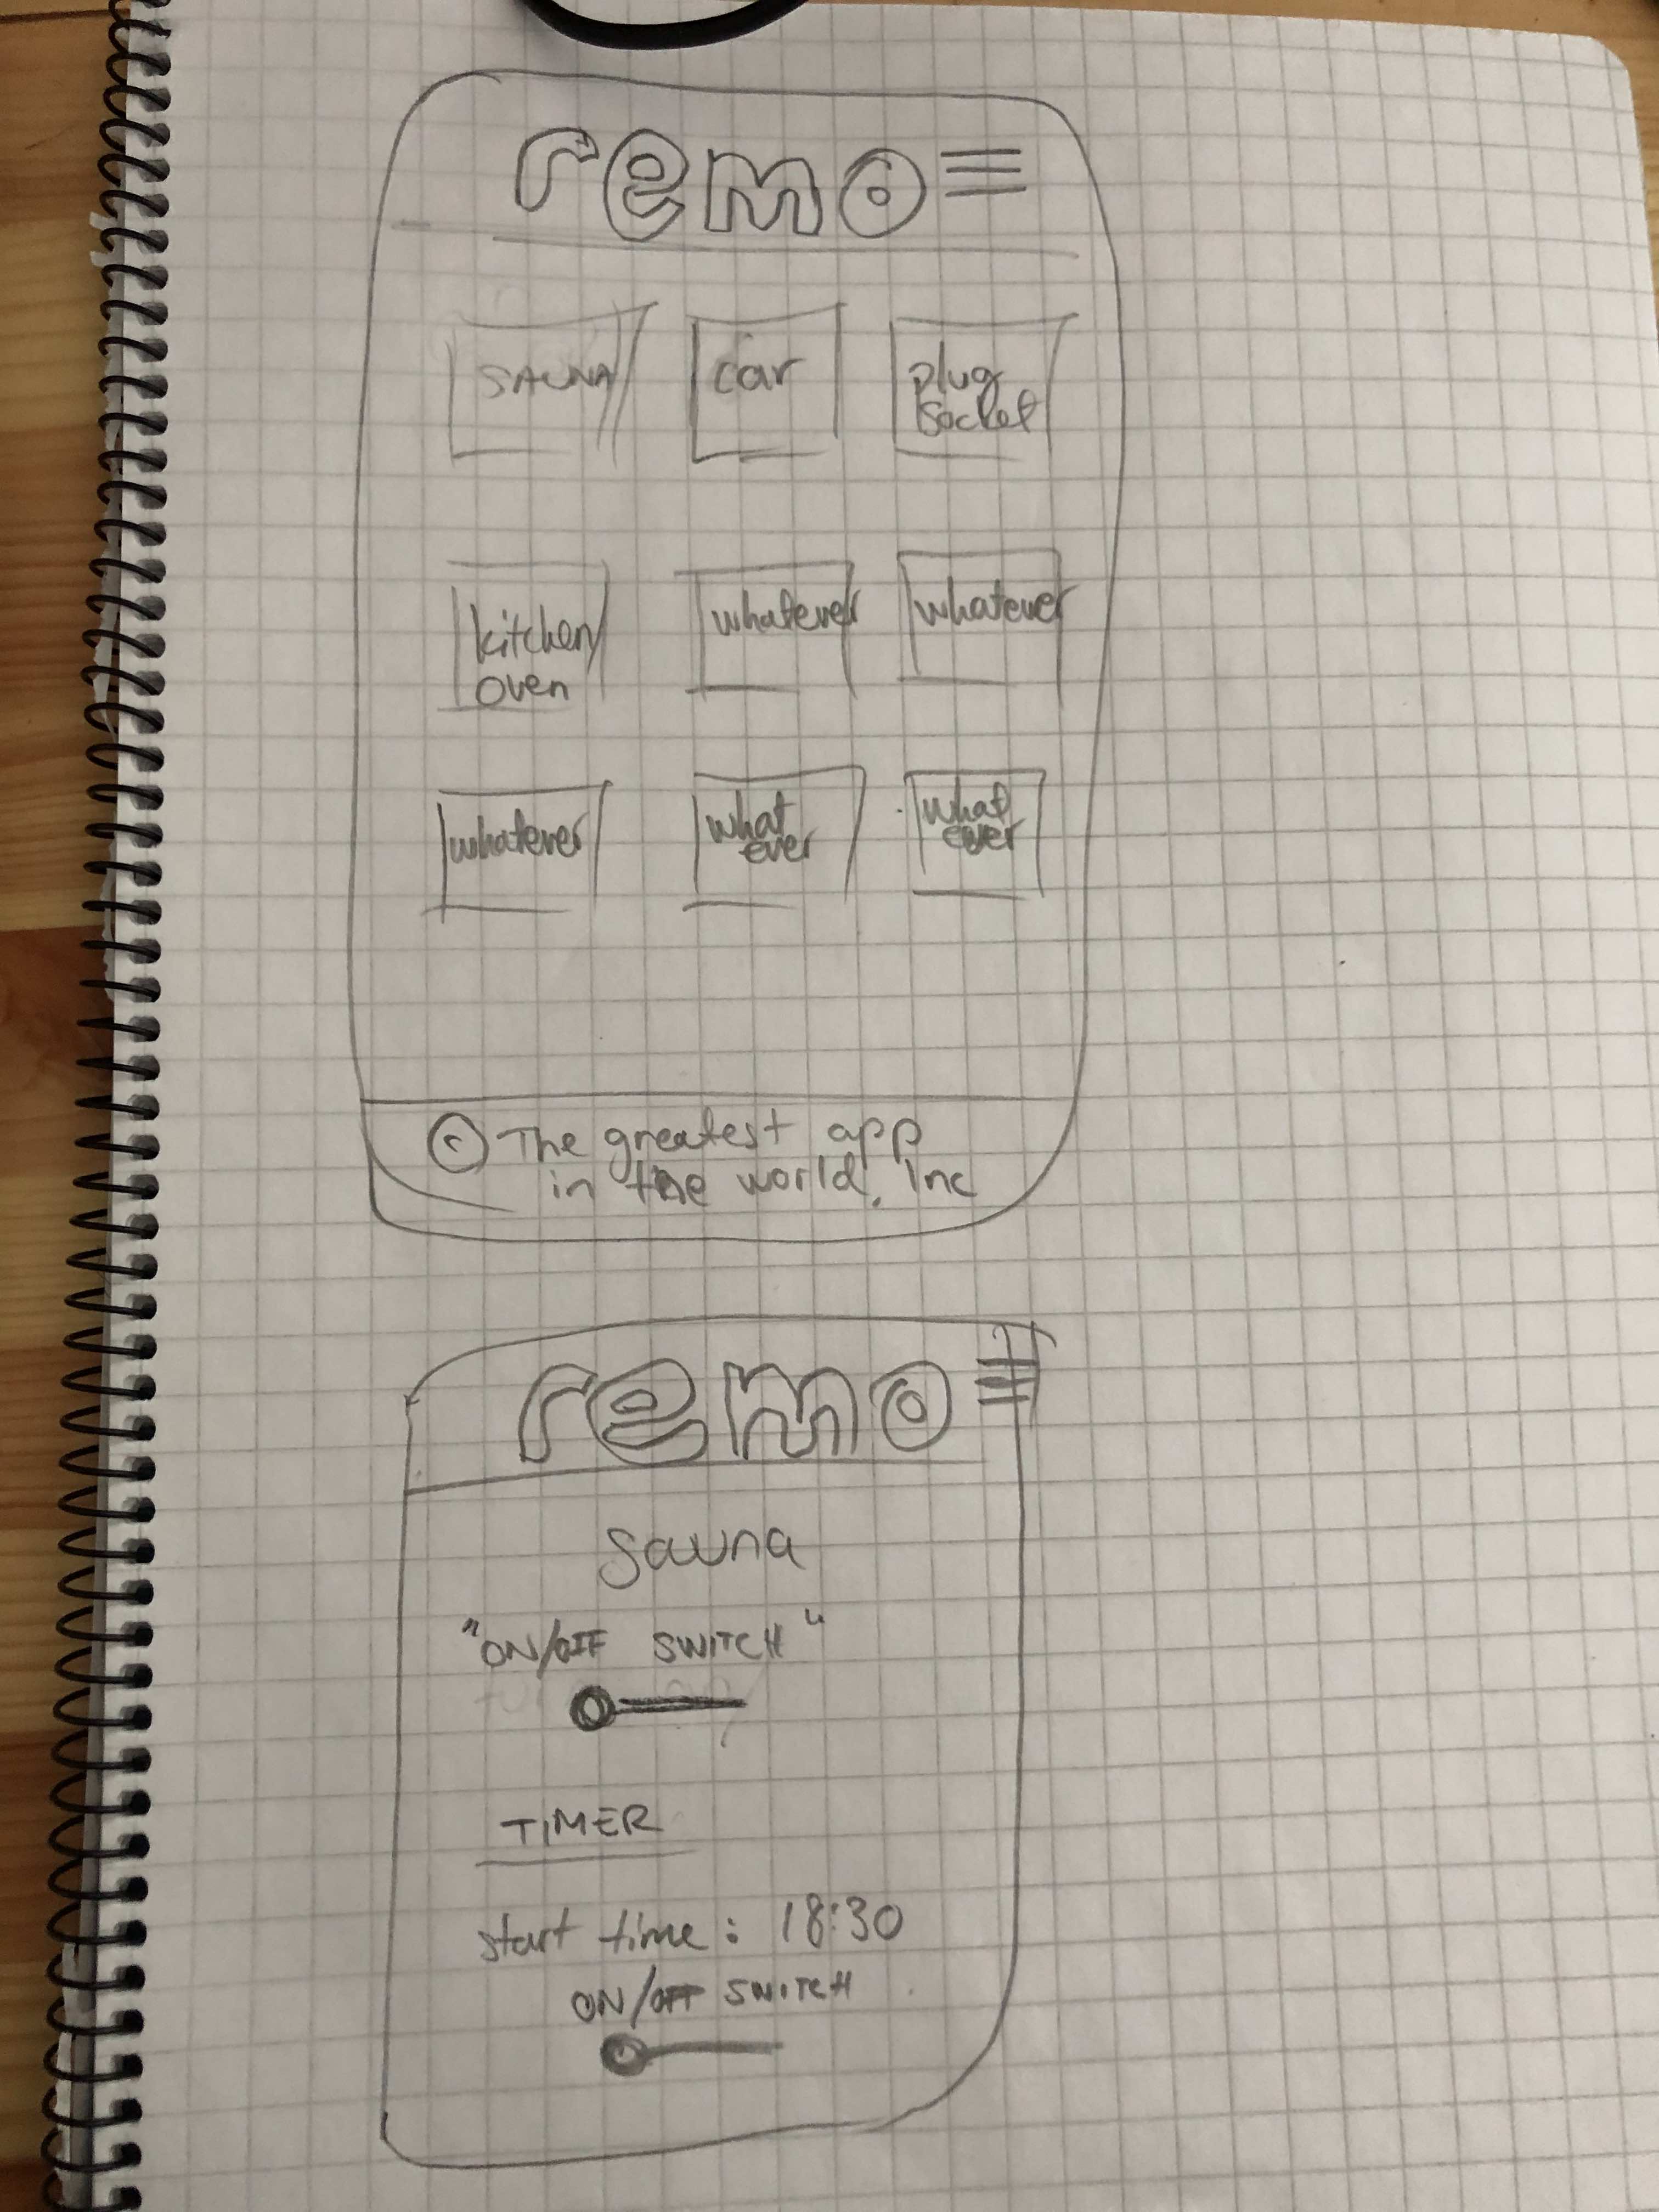 remo
SAUNA car plug
socket
kitchen whatever whatever
oven
whatever what what
ever ever
© The greatest app
in the world, Inc
remo
Sauna
"ON/OFF SWITCH"
TIMER
start time: 18:30
ON/OFF SWITCH